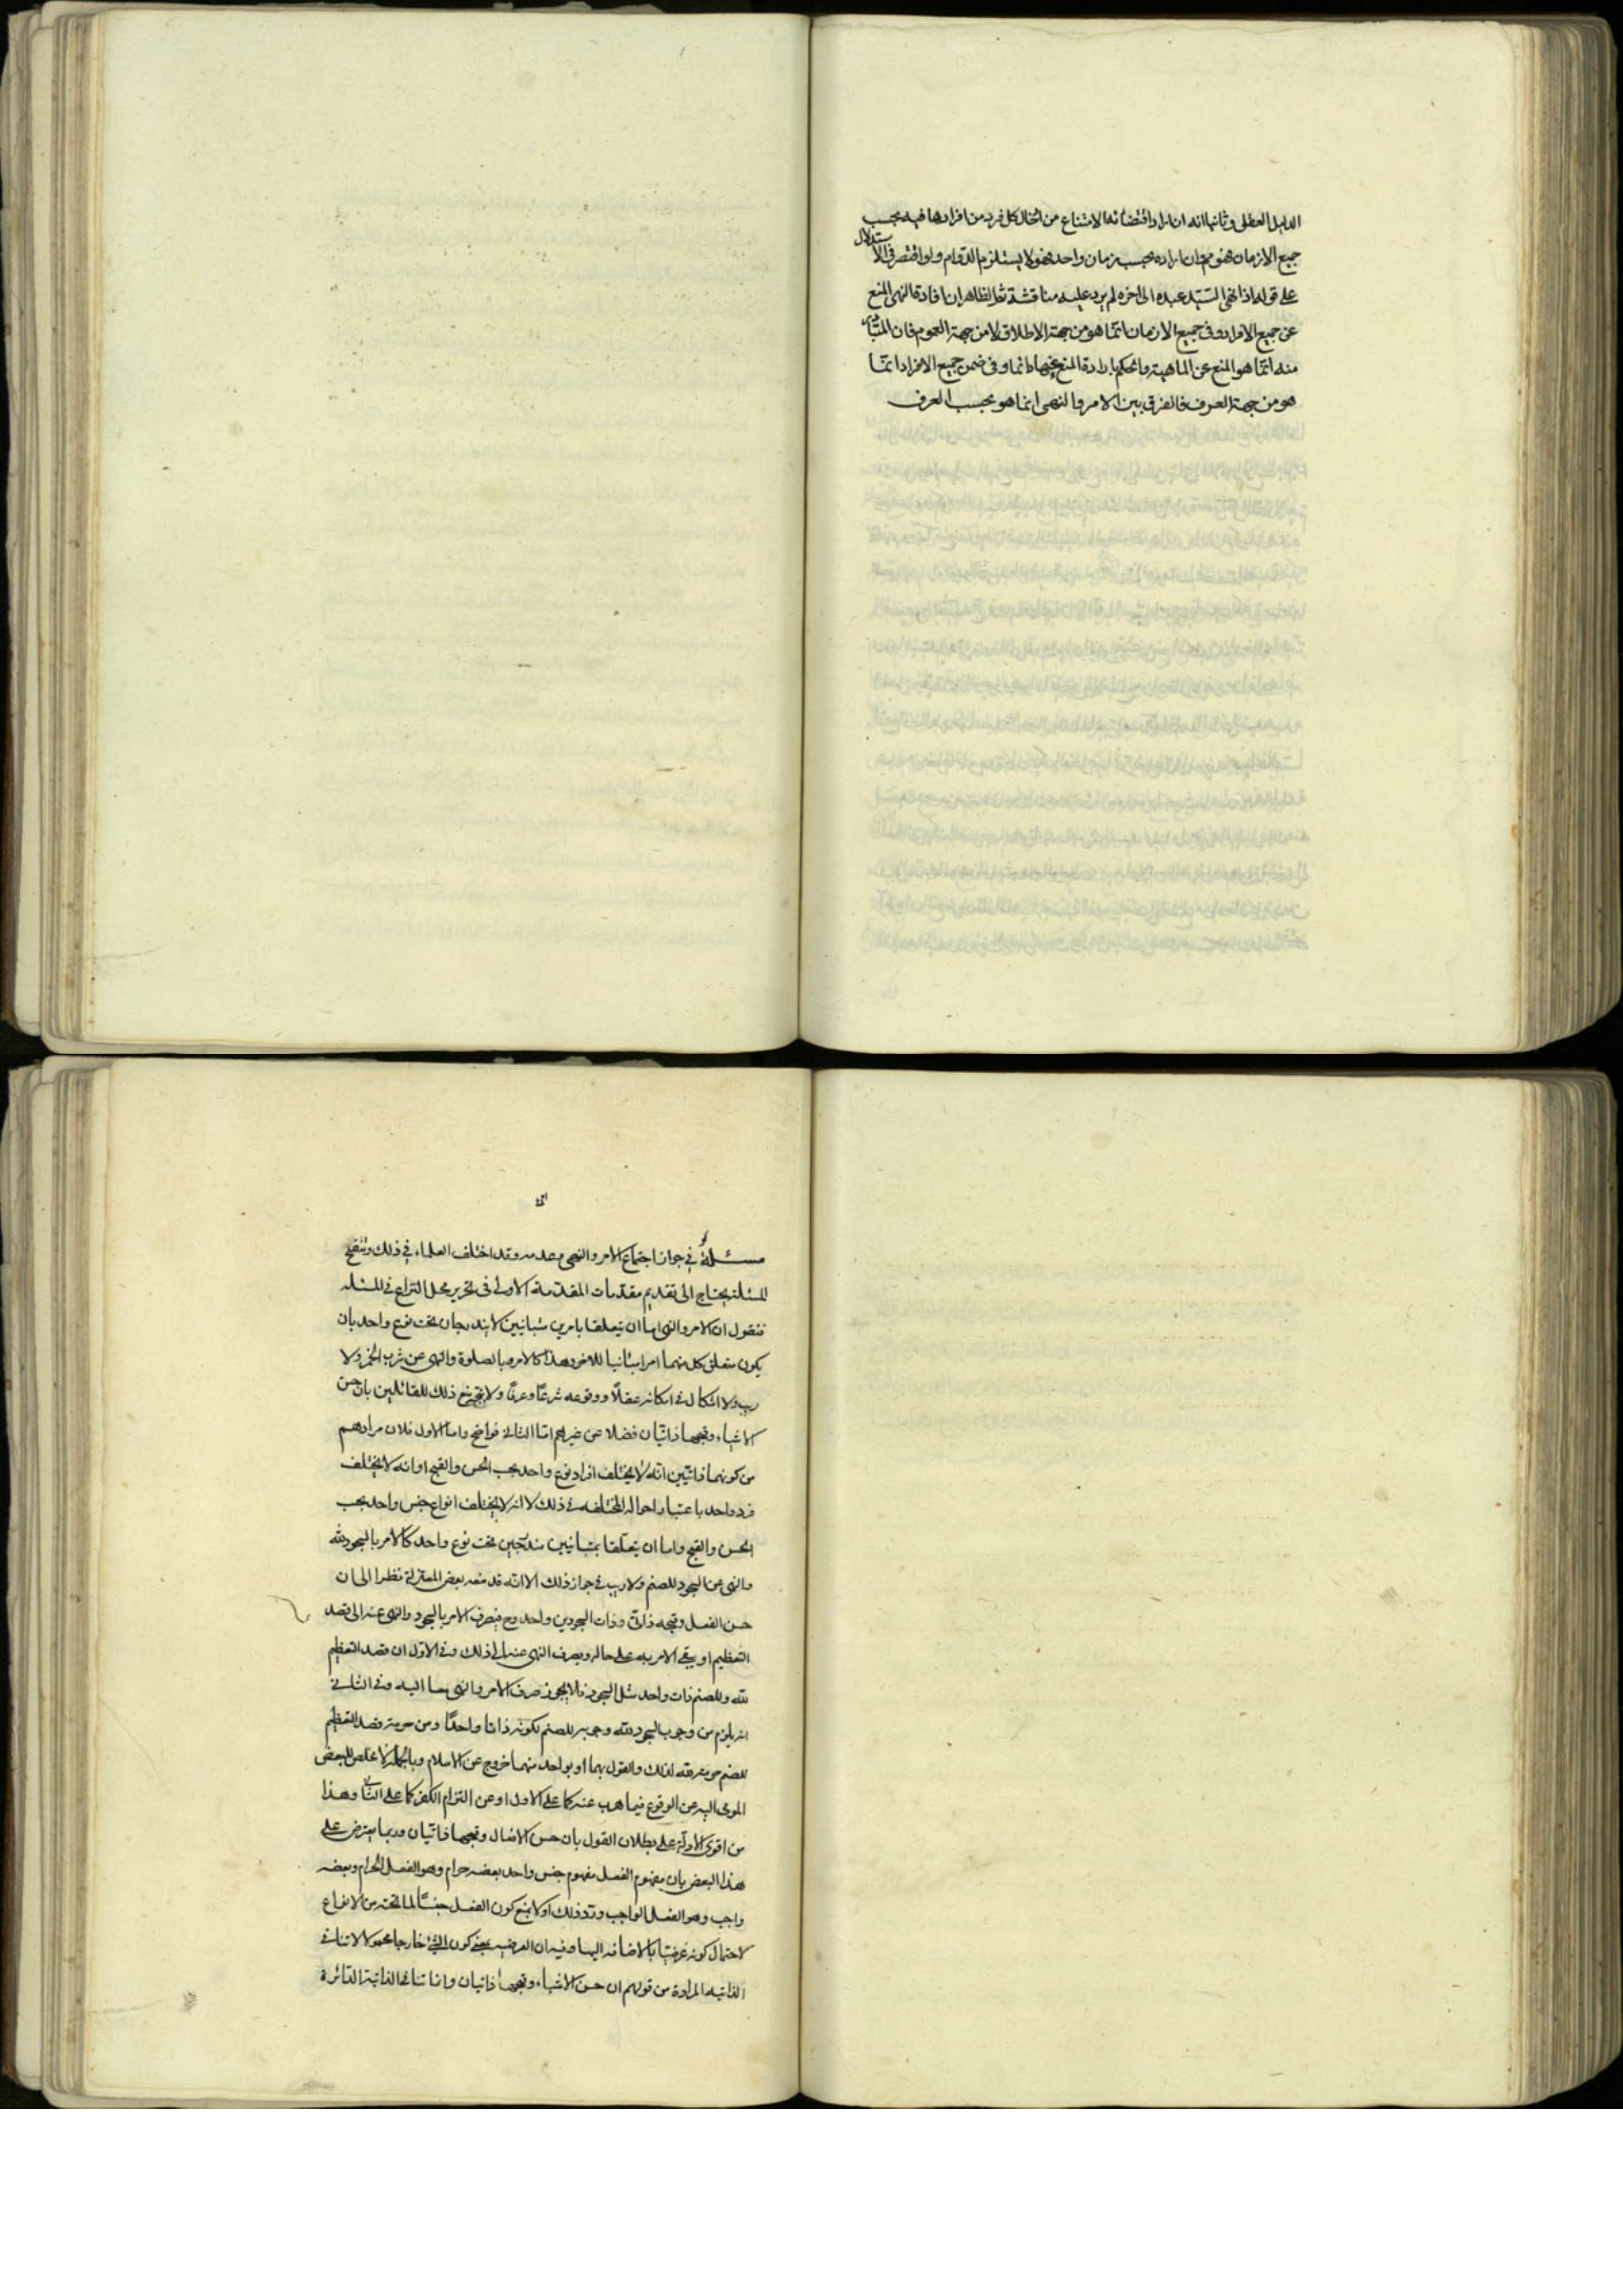 الدليل العقلى وثانيها انه ان اراد اقتضائه الامتناع من ادخال كل فرد من افرادها فيه بحسب
جميع الازمان فهو مم وان اراده بحسب زمان واحد فهو لا يستلزم الدوام ولو اقتصر فى الاستدلال
على قوله اذا نهى السّيّد عبده الى اخره لم يرد عليه مناقشة ثم الظاهر ان افادة النهى المنع
عن جميع الافراد وفى جميع الازمان انّما هو من جهة الاطلاق لا من جهة العموم فان المتبادر
منه انّما هو المنع عن الماهية والحكم بارادة المنع عنها دائما وفى ضمن جميع الافراد انّما
هو من جهة العرف فالفرق بين الامر والنهى انما هو بحسب العرف
مسئلة فى جواز اجتماع الامر والنهى وعدمه وقد اختلف العلماء فى ذلك وتنقيح
المسئلة يحتاج الى تقديم مقدّمات المقدّمة الاولى فى تحرير محل النزاع فى المسئله
فنقول ان الامر والنهى اما ان يتعلقا بامرين متباينين لا يندرجان تحت نوع واحد بان
يكون متعلق كل منهما امرا مباينا للاخر وهذا كالامر بالصلوة والنهى عن شرب الخمر ولا
ريب ولا اشكال فى امكانه عقلًا ووقوعه شرعًا وعرفًا ولا ذلك للقائلين بان حسن
الاشياء وقبحها ذاتيّان فضلا عن غيرهم امّا الثانى فواضح واما الاول فلان مرادهم
من كونهما ذاتيّين انّه لا يختلف افراد نوع واحد بحسب الحسن والقبح او انه لا يختلف
فرد واحد باعتبار احواله المختلفه فى ذلك لا انه لا يختلف انواع جنس واحد بحسب
الحسن والقبح واما ان يتعلّقا بمتباينين مندرجين تحت نوع واحد كالامر بالسجود لله
والنهى عن السجود للصنم ولا ريب فى جواز ذلك الا انّه قد منعه بعض المعتزلة نظرا الى ان
حسن الفعل وقبحه ذاتى وذات السجودين واحد وح فيصرف الامر بالسجود والنهى عنه الى قصد
التعظيم او يبقى الامر به على حاله ويصرف النهى عنه الى ذلك وفى الاوّل ان قصد التعظيم
لله وللصنم ذات واحد مثل السجود فلا يجوز صرف الامر والنهى معا اليه وفى الثانى
انه يلزم من وجوب السجود لله وجوبه للصنم لكونه ذاتا واحدًا ومن حرمة قصد التعظيم
للصنم حرمته لله لذلك والقول بهما او بواحد منهما خروج عن الاسلام وبالجملة لا مخلص للبعض
المومى اليه عن الوقوع فيما هرب عنه كما على الاول او عن التزام الكفر كما على الثّانى وهذا
من اقوى الادلّة على بطلان القول بان حسن الافعال وقبحها ذاتيّان وربما يعترض على
هذا البعض بان مفهوم الفعل مفهوم جنس واحد بعضه حرام وهو الفعل الحرام وبعضه
واجب وهو الفعل الواجب وردّ ذلك اولا بمنع كون الفعل جنسًا لما تحته من الانواع
لاحتمال كونه عرضيّا بالاضافه اليها وفيه ان العرضيه بمعنى كون الشئ خارجا محمولا لا تنافى
الذاتيه المرادة من قولهم ان حسن الاشياء وقبحها ذاتيان وانما تنافى الذاتية الدائرة